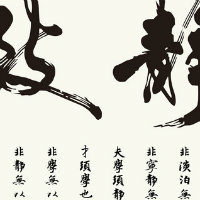 靜
致
非淡泊無
非寧靜無
夫學須靜
才須學也
非學無以
非靜無以